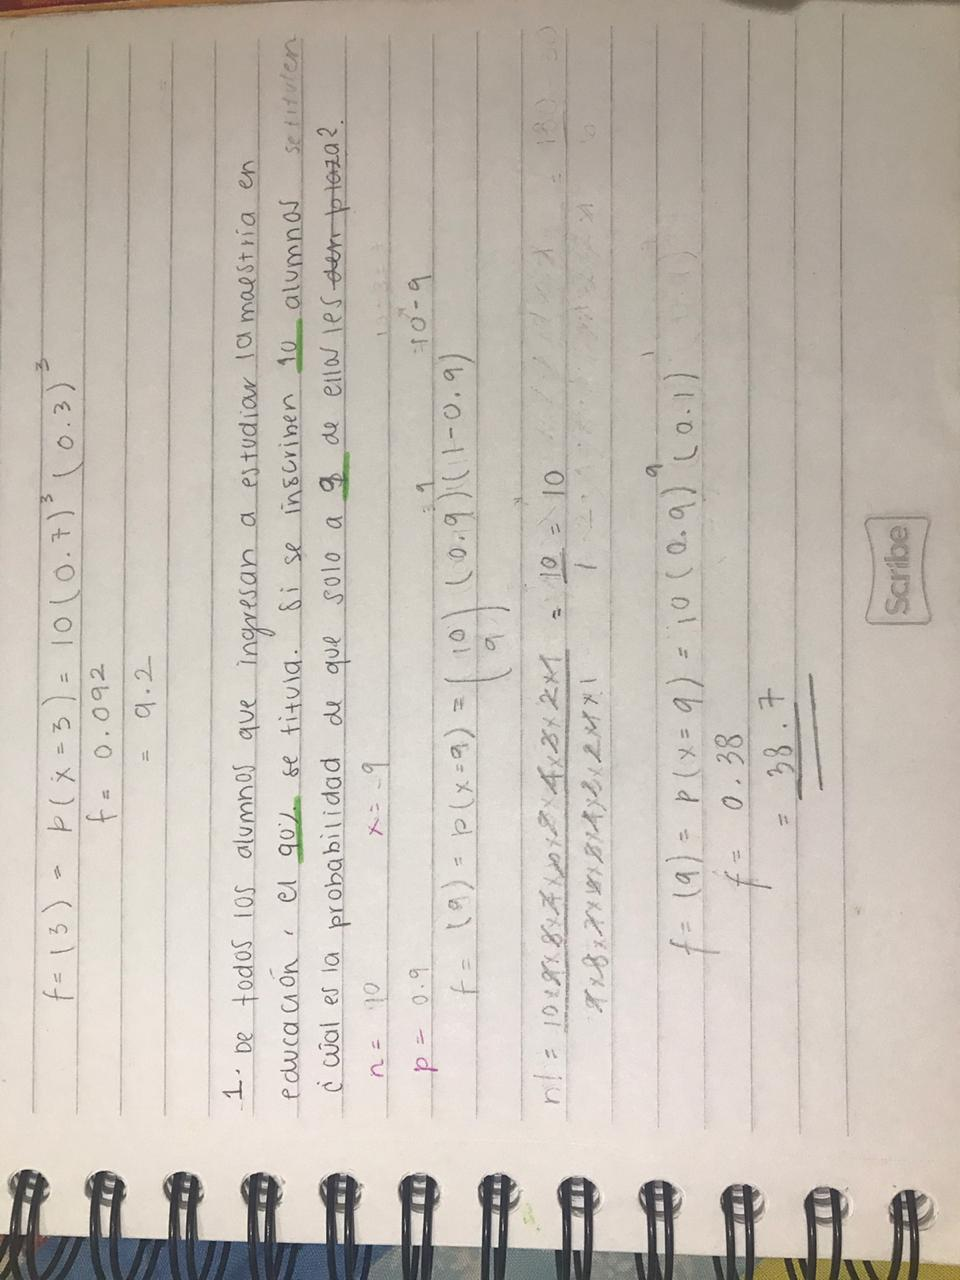 f=(3) = P(x=3)= 10(0.7)³(0.3)³
f= 0.092
= 9.2
1. De todos los alumnos que ingresan a estudiar la maestria en
educación, el 90% se titula. Si se inscriben 10 alumnos
¿cuál es la probabilidad de que solo a 9 de ellos les den plaza?. se titulen
n= 10 x= 9
p= 0.9 =10-9
f= (9) = P(x=9) = (10 9) (0.9)⁹(1-0.9)
n! = 10x9x8x7x6x5x4x3x2x1 = 10 = 10
9x8x7x6x5x4x3x2x1x1 1
f= (9) = P(x=9) = 10 (0.9)⁹ (0.1)¹
f= 0.38
= 38.7
Scribe